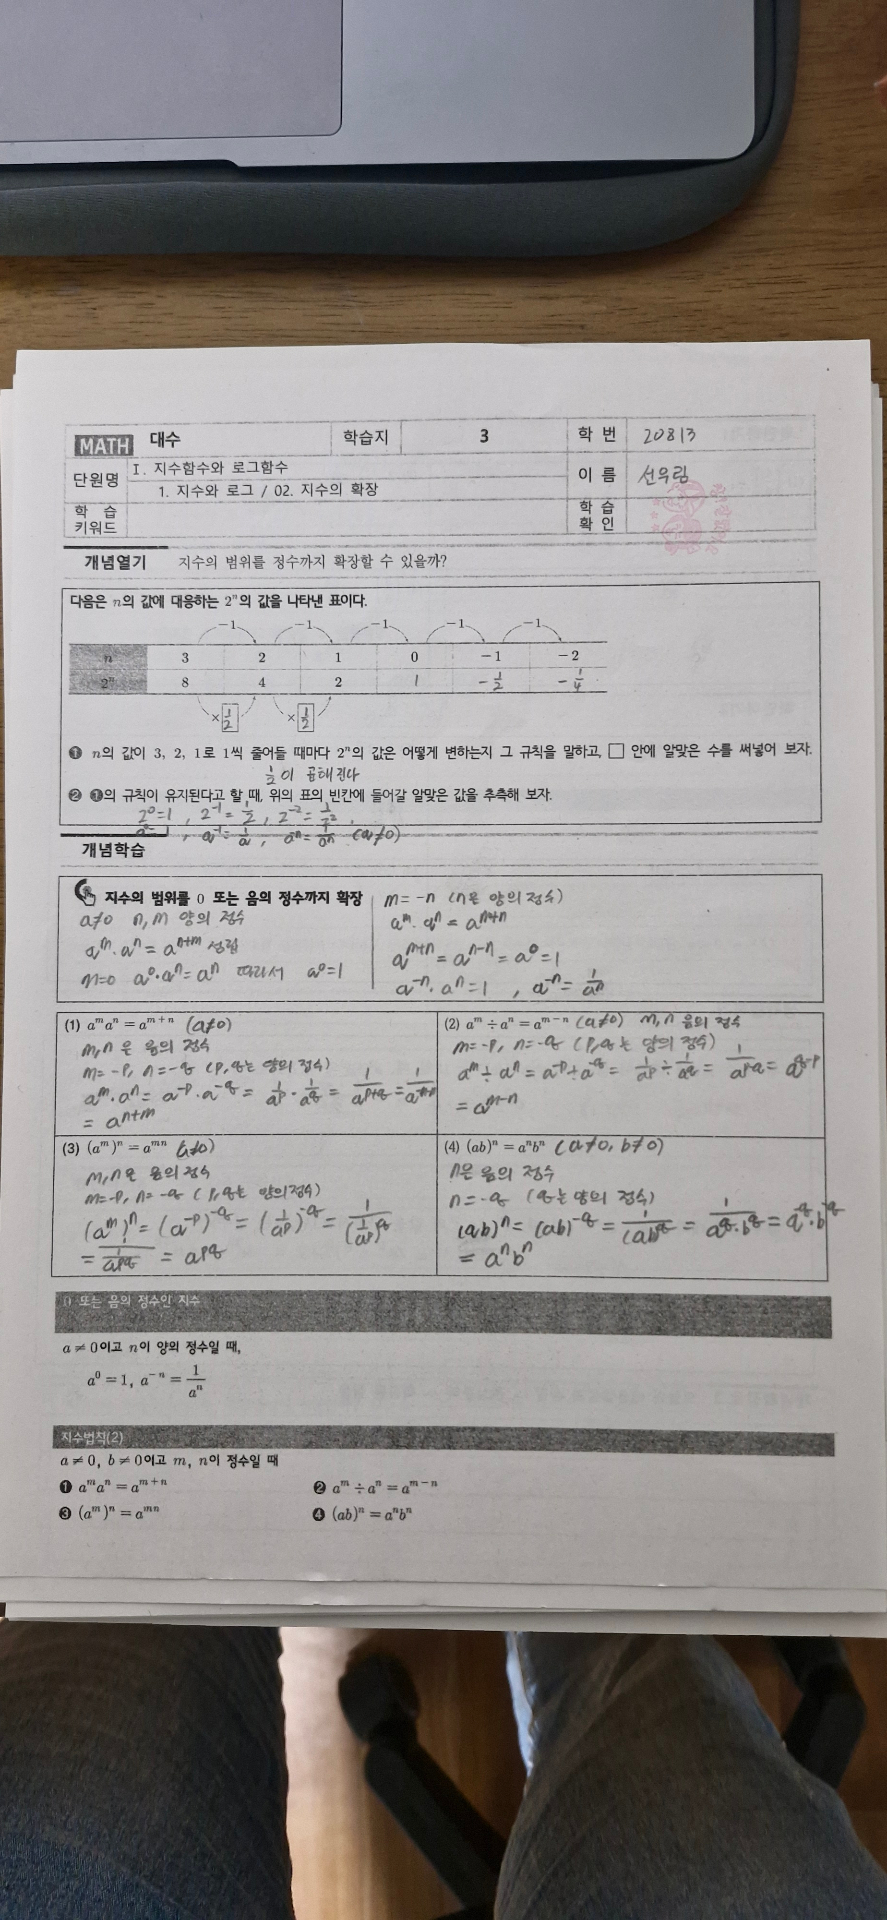 MATH 대수 학습지 3 학 번 20813
단원명 I. 지수함수와 로그함수 이 름 선우림
1. 지수와 로그 / 02. 지수의 확장
학 습 키워드 학 습 확 인
개념열기 지수의 범위를 정수까지 확장할 수 있을까?
다음은 n의 값에 대응하는 2ⁿ의 값을 나타낸 표이다.
-1 -1 -1 -1 -1
n 3 2 1 0 -1 -2
2ⁿ 8 4 2 1 -1/2 -1/4
×1/2 ×1/2
❶ n의 값이 3, 2, 1로 1씩 줄어들 때마다 2ⁿ의 값은 어떻게 변하는지 그 규칙을 말하고, □ 안에 알맞은 수를 써넣어 보자.
1/2이 곱해진다
❷ ❶의 규칙이 유지된다고 할 때, 위의 표의 빈칸에 들어갈 알맞은 값을 추측해 보자.
2⁰=1, 2⁻¹=1/2, 2⁻²=1/2²,
a⁰=1, a⁻¹=1/a, a⁻ⁿ=1/aⁿ (a≠0)
개념학습
지수의 범위를 0 또는 음의 정수까지 확장
a≠0 n, m 양의 정수
aᵐ·aⁿ=aⁿ⁺ᵐ 성립
m=0 a⁰·aⁿ=aⁿ 따라서 a⁰=1
m=-n (n은 양의 정수)
aᵐ·aⁿ=aᵐ⁺ⁿ
aᵐ⁺ⁿ=aⁿ⁻ⁿ=a⁰=1
a⁻ⁿ·aⁿ=1, a⁻ⁿ=1/aⁿ
(1) aᵐaⁿ=aᵐ⁺ⁿ (a≠0)
m, n은 음의 정수
m=-p, n=-q (p, q는 양의 정수)
aᵐ·aⁿ=a^(-p)·a^(-q)=1/a^p·1/a^q=1/a^(p+q)=
=aⁿ⁺ᵐ
(2) aᵐ÷aⁿ=aᵐ⁻ⁿ (a≠0) m, n 음의 정수
m=-p, n=-q (p, q는 양의 정수)
aᵐ÷aⁿ=a^(-p)÷a^(-q)=1/a^p÷1/a^q= =a^(q-p)
=aᵐ⁻ⁿ
(3) (aᵐ)ⁿ=aᵐⁿ (a≠0)
m, n은 음의 정수
m=-p, n=-q (p, q는 양의 정수)
(aᵐ)ⁿ=(a^(-p))^(-q)=(1/a^p)^(-q)=1/(1/a^p)^q
=1/(1/a^(pq))=a^(pq)
(4) (ab)ⁿ=aⁿbⁿ (a≠0, b≠0)
n은 음의 정수
n=-q (q는 양의 정수)
(ab)ⁿ=(ab)^(-q)=1/(ab)^q=1/(a^q·b^q)=a^(-q)·b^(-q)
=aⁿbⁿ
0 또는 음의 정수인 지수
a≠0이고 n이 양의 정수일 때,
a⁰=1, a⁻ⁿ=1/aⁿ
지수법칙(2)
a≠0, b≠0이고 m, n이 정수일 때
❶ aᵐaⁿ=aᵐ⁺ⁿ ❷ aᵐ÷aⁿ=aᵐ⁻ⁿ
❸ (aᵐ)ⁿ=aᵐⁿ ❹ (ab)ⁿ=aⁿbⁿ